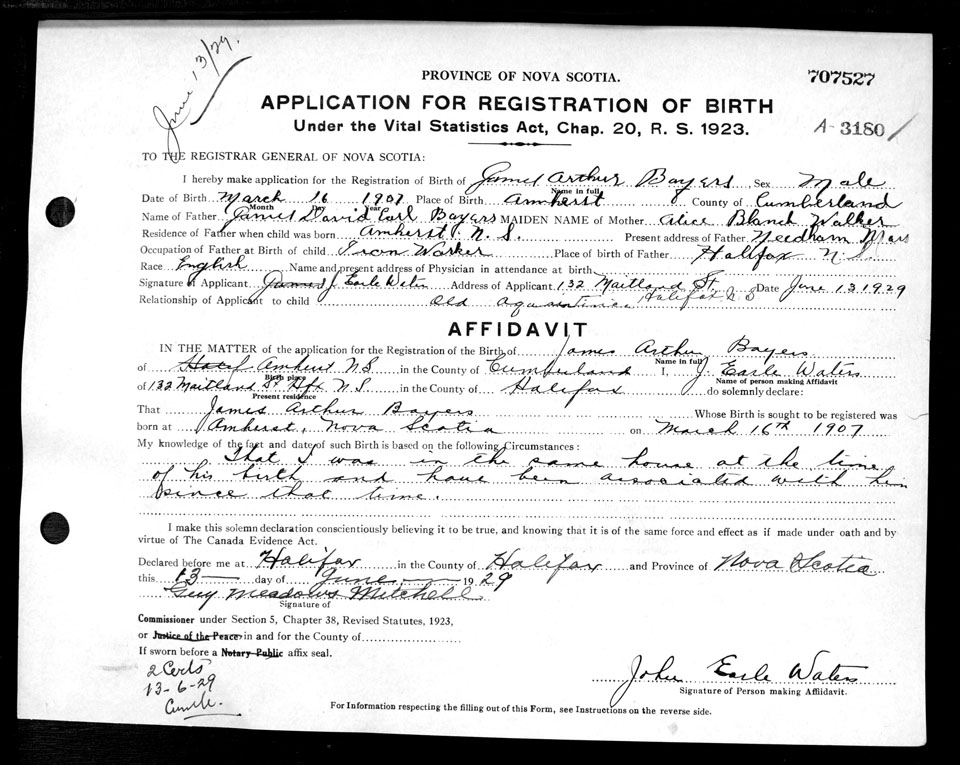 June 13/29.
PROVINCE OF NOVA SCOTIA.
707527
APPLICATION FOR REGISTRATION OF BIRTH
Under the Vital Statistics Act, Chap. 20, R. S. 1923.
A-3180
TO THE REGISTRAR GENERAL OF NOVA SCOTIA:
I hereby make application for the Registration of Birth of James Arthur Bayers Sex Male
Name in full
Date of Birth March 16 1907 Place of Birth Amherst County of Cumberland
Month Day Year
Name of Father James David Earl Bayers MAIDEN NAME of Mother Alice Blanch Walker
Residence of Father when child was born Amherst N. S. Present address of Father Needham
Occupation of Father at Birth of child Iron Worker Place of birth of Father Halifax N. S.
Race English Name and present address of Physician in attendance at birth
Signature of Applicant James J Earle Waters Address of Applicant 132 Maitland St. Date June 13 1929
Relationship of Applicant to child Old Halifax N S
AFFIDAVIT
IN THE MATTER of the application for the Registration of the Birth of James Arthur Bayers
of Amherst N S in the County of Cumberland I, J Earle Waters
Birth place Name of person making Affidavit
of 132 Maitland St Hfx N. S. in the County of Halifax do solemnly declare:
Present residence
That James Arthur Bayers Whose Birth is sought to be registered was
born at Amherst, Nova Scotia on March 16th 1907
My knowledge of the fact and date of such Birth is based on the following Circumstances:
That I was in the same house at the time
of his birth and have been associated with him
since that time.
I make this solemn declaration conscientiously believing it to be true, and knowing that it is of the same force and effect as if made under oath and by
virtue of The Canada Evidence Act.
Declared before me at Halifax in the County of Halifax and Province of Nova Scotia
this 13 day of June 1929
Guy Meadows Mitchell
Signature of
Commissioner under Section 5, Chapter 38, Revised Statutes, 1923,
or Justice of the Peace in and for the County of
If sworn before a Notary Public affix seal.
2 Certs
13-6-29
John Earle Waters
Signature of Person making Affidavit.
For Information respecting the filling out of this Form, see Instructions on the reverse side.